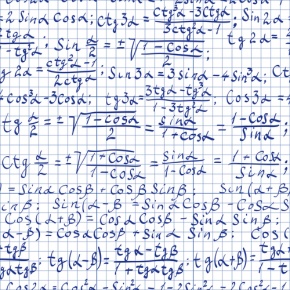 2 Sinα Cosα; ctg3α = (ctg³α - 3ctgα)/(3ctg²α - 1); Sin2α
2tgα/(1 - tg²α); Sin α/2 = ±√((1 - cosα)/2); tg2α =
2α = (ctg²α - 1)/(2ctgα); Sin3α = 3Sinα - 4Sin³α; C
4cos³α - 3cosα; tg3α = (3tgα - tg³α)/(1 - 3tg²α); Cos3α = 4
tg α/2 = ±√((1 - cosα)/2) = Sinα/(1 + Cosα) = (1 - Cosα)/Sinα;
Ctg α/2 = ±√((1 + Cosα)/(1 - Cosα)) = Sinα/(1 - Cosα) = (1 + Cosα)/Sinα;
) = Sinα Cosβ + Cosα Sinβ; Sin(α+β)
inβ; Sin(α - β) = Sinα Cosβ - Cosα S
Cos(α+β) = Cosα Cosβ - Sinα Sinβ;
α - β) = Cosα Cosβ + Sinα Sinβ; Cos(
tgβ/tgαtgβ; tg(α-β) = (tgα - tgβ)/(1 + tgαtgβ); tg(α+β) =